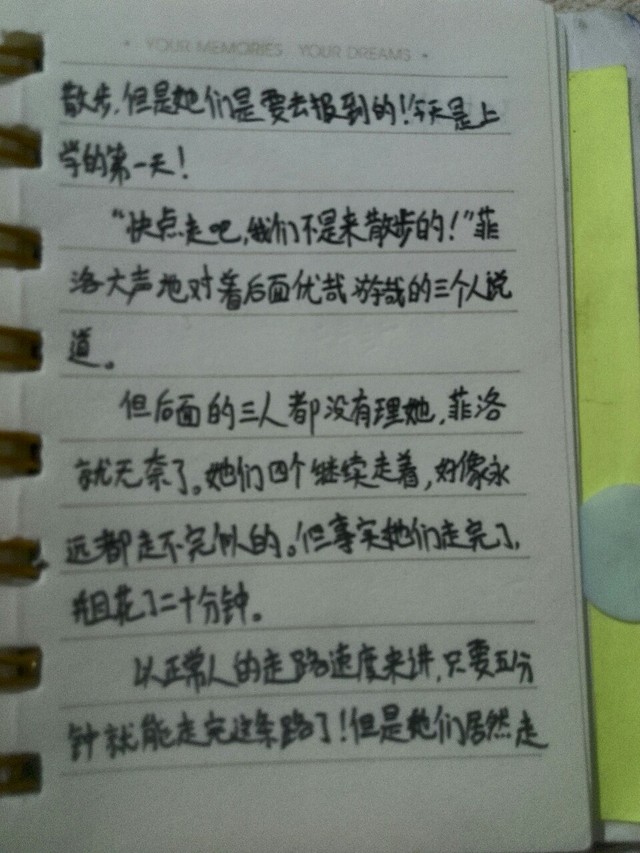 YOUR MEMORIES YOUR DREAMS
散步,但是她们是要去报到的!今天是上
学的第一天!
“快点走吧,我们不是来散步的!”菲
洛大声地对着后面优哉游哉的三个人说
道。
但后面的三人都没有理她,菲洛
就无奈了。她们四个继续走着,好像永
远都走不完似的。但事实她们走完了,
并且花了二十分钟。
以正常人的走路速度来讲,只要五分
钟就能走完这条路了!但是她们居然走